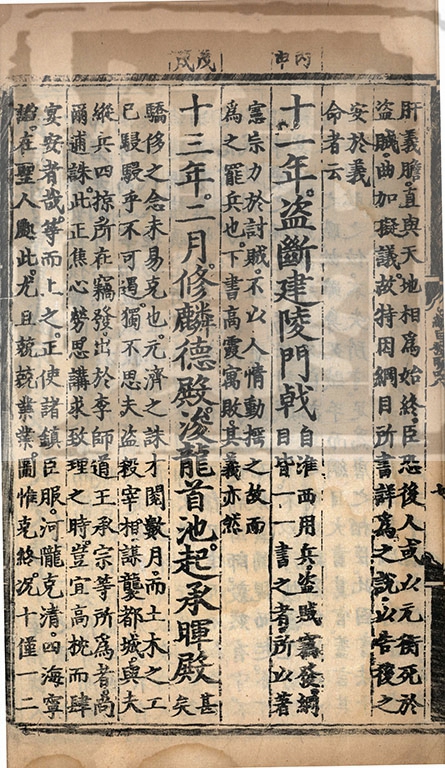 丙申
茂戌
肝義膽。直與天地相為始終。臣恐後人或以元衡死於
盜賊。曲加擬議。故特因綱目所書。詳為之說。以告後之
安於義
命者云
十一年。盜斷建陵門戟
自淮西用兵。盜賊竊發。綱
目皆一一書之者。所以著
憲宗力於討賊。不以人情動搖之故而
為之罷兵也。下書高霞寓敗。其義亦然
十三年。二月。修麟德殿。浚龍首池。起承暉殿
甚
矣
驕侈之念。未易克也。元濟之誅。才閱數月。而土木之工
已駸駸乎不可遏。獨不思夫盜殺宰相。謀襲都城。與夫
縱兵四掠。所在竊發。出於李師道王承宗等所為者。尚
爾逋誅。此正焦心勞思。講求致理之時。豈宜高桃而肆
宴安者哉。等而上之。正使諸鎮臣服。河隴克清。四海寧
謐。在聖人處此。尤且兢兢業業。圖惟克終。況十僅一二